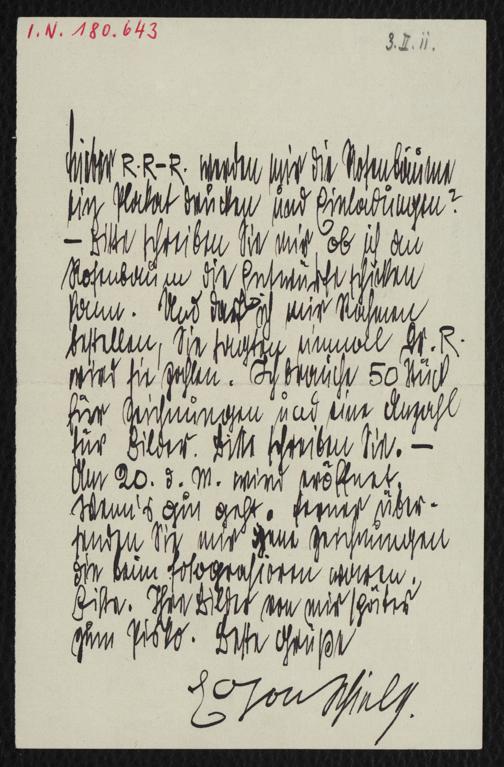 I.N. 180.643
3.II.11.
Lieber R.R-R. werden mir die Rosenbäume
ein Plakat drucken und Einladungen?
– Bitte schreiben Sie mir ob ich an
Rosenbaum die Entwürfe schicken
kann. Und darf ich mir Rahmen
bestellen, Sie sagten einmal Dr. R.
wird sie zahlen. Ich brauche 50 Stück
für Zeichnungen und eine Anzahl
für Bilder. Bitte schreiben Sie. –
Am 20. d. M. wird eröffnet.
Wenn's gut geht. Ferner über-
senden Sie mir jene Zeichnungen
die beim fotografieren waren.
Bitte. Ihre Bilder von mir später
zum Pisko. Beste Grüße
Egon Schiele.